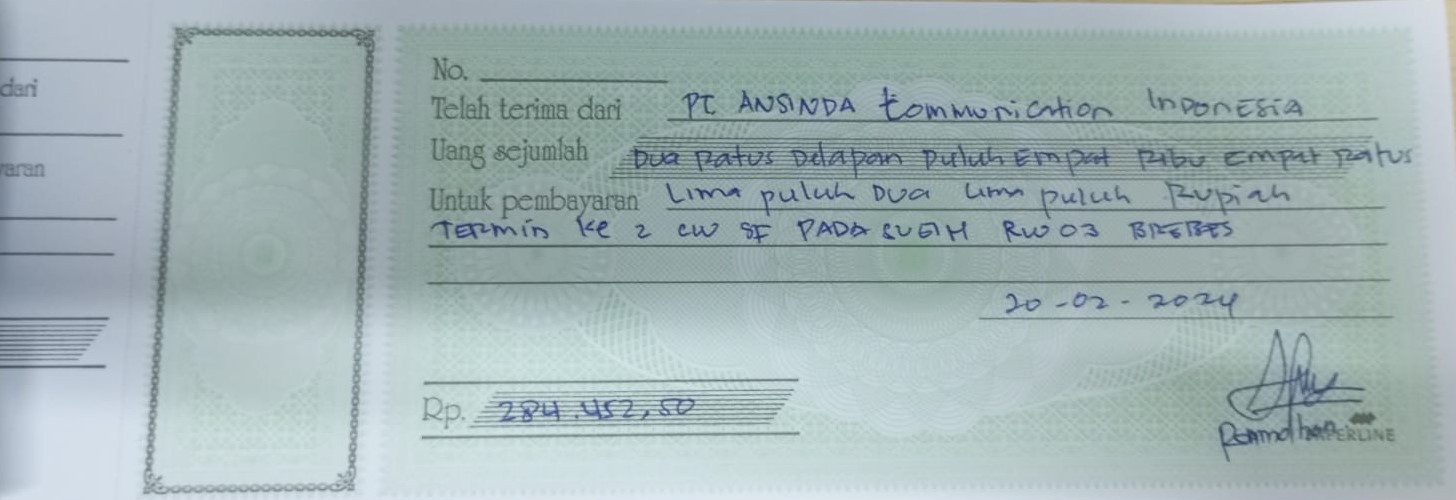 dari
varan
No.
Telah terima dari PT ANSINDA Communication INDONESIA
Uang sejumlah Dua Ratus Delapan puluh Empat Ribu Empat Ratus
Untuk pembayaran Lima puluh Dua Lima puluh Rupiah
TERMIN Ke 2 CW SF PADA RW 03 BREBES
20-02-2024
Rp. 284.452,50
PAPERLINE